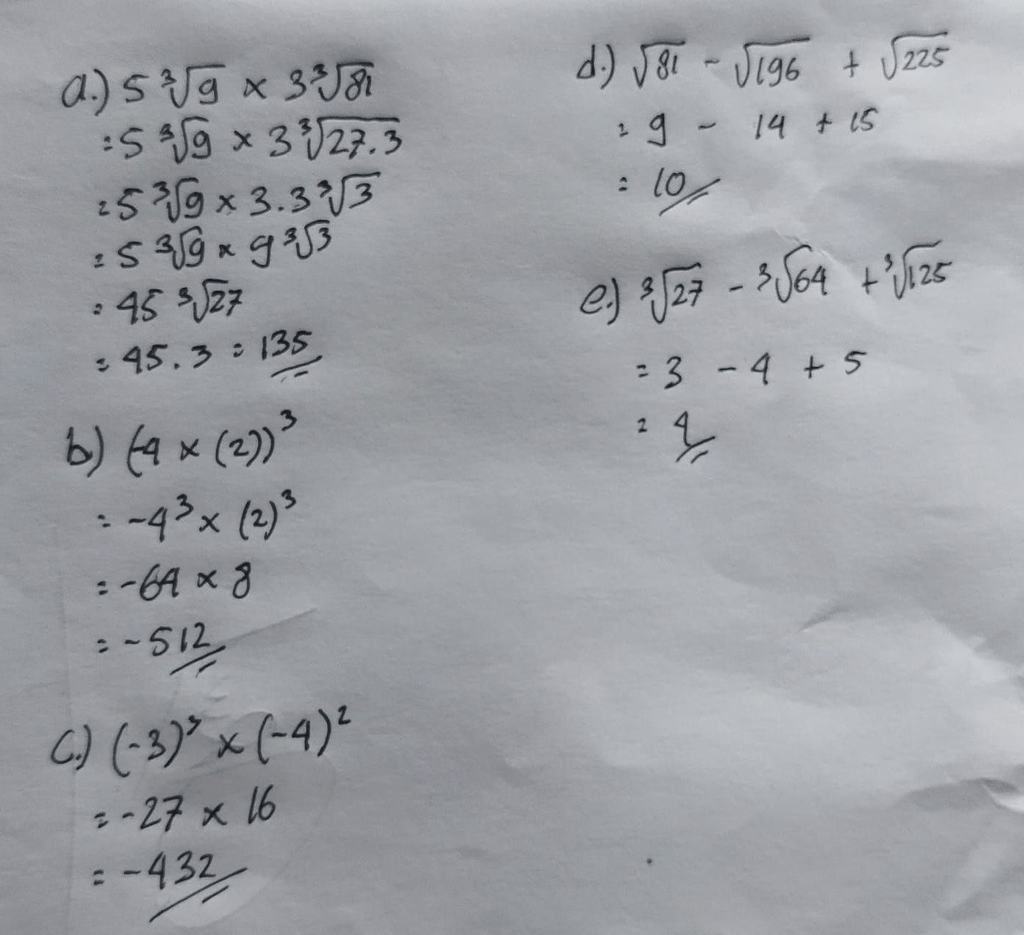 a.) 5 ³√9 × 3 ³√81
= 5 ³√9 × 3 ³√27.3
= 5 ³√9 × 3.3 ³√3
= 5 ³√9 × 9 ³√3
= 45 ³√27
= 45.3 = 135
b) (-4 × (2))³
= -4³ × (2)³
= -64 × 8
= -512
c.) (-3)³ × (-4)²
= -27 × 16
= -432
d.) √81 - √196 + √225
= 9 - 14 + 15
= 10
e.) ³√27 - ³√64 + ³√125
= 3 - 4 + 5
= 4